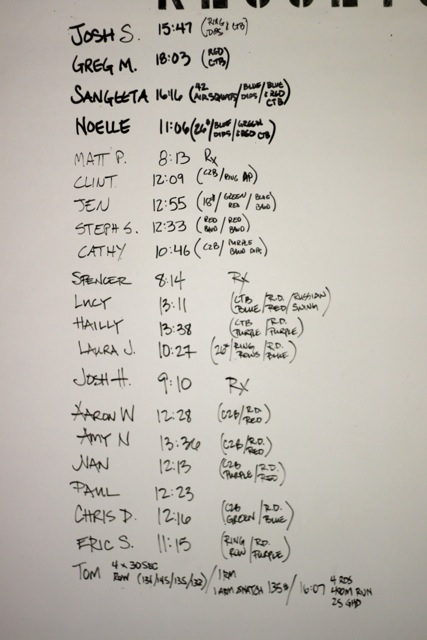 RESULTS
JOSH S. 15:47 (RING DIPS & CTB)
GREG M. 18:03 (RED CTB)
SANGEETA 16:16 (42 AIR SQUATS/BLUE DIPS/BLUE & RED CTB)
NOELLE 11:06 (26"/BLUE DIPS/GREEN & RED CTB)
MATT P. 8:13 Rx
CLINT 12:09 (C2B/RING DIP)
JEN 12:55 (18#/GREEN RED/BLUE BAND)
STEPH S. 12:33 (RED BAND/RED BAND)
CATHY 10:46 (C2B/PURPLE BAND DIPS)
SPENCER 8:14 Rx
LUCY 13:11 (CTB BLUE/R.D. RED/RUSSIAN SWING)
HAILLY 13:38 (CTB PURPLE/R.D. PURPLE)
LAURA J. 10:27 (26#/RING ROWS/R.D. BLUE)
JOSH H. 9:10 Rx
AARON W 12:28 (C2B/R.D. RED)
AMY N 13:36 (C2B/R.D. RED)
NAN 12:13 (C2B PURPLE/R.D. RED)
PAUL 12:23
CHRIS D. 12:16 (C2B GREEN/R.D. BLUE)
ERIC S. 11:15 (RING ROW/R.D. PURPLE)
TOM 4 x 30 SEC ROW (134/145/135/132)/1 RM 1 ARM SNATCH 135#/16:07 4 RDS 400M RUN 25 GHD